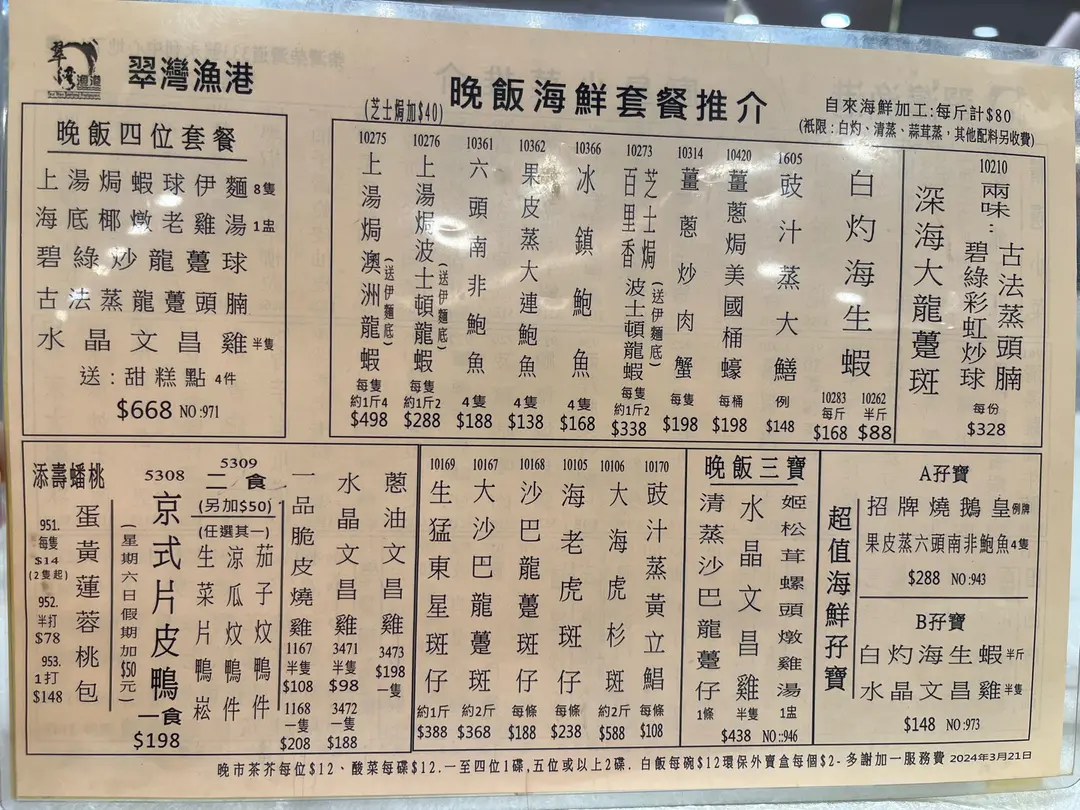 翠灣漁港
翠灣漁港
晚飯海鮮套餐推介
(芝士焗加$40)
自來海鮮加工:每斤計$80
(衹限:白灼、清蒸、蒜茸蒸，其他配料另收費)
晚飯四位套餐
上湯焗蝦球伊麵 8隻
海底椰燉老雞湯 1盅
碧綠炒龍躉球
古法蒸龍躉頭腩
水晶文昌雞 半隻
送:甜糕點 4件
$668 NO:971
10275
上湯焗澳洲龍蝦
(送伊麵底)
每隻
約1斤4
$498
10276
上湯焗波士頓龍蝦
(送伊麵底)
每隻
約1斤2
$288
10361
六頭南非鮑魚
4隻
$188
10362
果皮蒸大連鮑魚
4隻
$138
10366
冰鎮鮑魚
4隻
$168
10273
芝士焗
百里香
波士頓龍蝦
(送伊麵底)
每隻
約1斤2
$338
10314
薑蔥炒肉蟹
每隻
$198
10420
薑蔥焗美國桶蠔
每桶
$198
1605
豉汁蒸大鱔
例
$148
白灼海生蝦
10283
每斤
$168
10262
半斤
$88
10210
兩味:
古法蒸頭腩
碧綠彩虹炒球
深海大龍躉斑
每份
$328
添壽蟠桃
蛋黃蓮蓉桃包
951.
每隻
$14
(2隻起)
952.
半打
$78
953.
1打
$148
5308
京式片皮鴨
(星期六日假期加$50元)
一食
$198
5309
二食
(另加$50)
(任選其一)
茄子炆鴨件
涼瓜炆鴨件
生菜片鴨崧
一品脆皮燒雞
1167
半隻
$108
1168
一隻
$208
水晶文昌雞
3471
半隻
$98
3472
一隻
$188
蔥油文昌雞
3473
$198
一隻
10169
生猛東星斑仔
約1斤
$388
10167
大沙巴龍躉斑
約2斤
$368
10168
沙巴龍躉斑仔
每條
$188
10105
海老虎斑仔
每條
$238
10106
大海虎杉斑
約2斤
$588
10170
豉汁蒸黃立鯧
每條
$108
晚飯三寶
姬松茸螺頭燉雞湯
1盅
水晶文昌雞
半隻
清蒸沙巴龍躉仔
1條
$438 NO.:946
超值海鮮孖寶
A孖寶
招牌燒鵝皇 例牌
果皮蒸六頭南非鮑魚 4隻
$288 NO:943
B孖寶
白灼海生蝦 半斤
水晶文昌雞 半隻
$148 NO:973
晚市茶芥每位$12、酸菜每碟$12.一至四位1碟,五位或以上2碟. 白飯每碗$12環保外賣盒每個$2- 多謝加一服務費 2024年3月21日